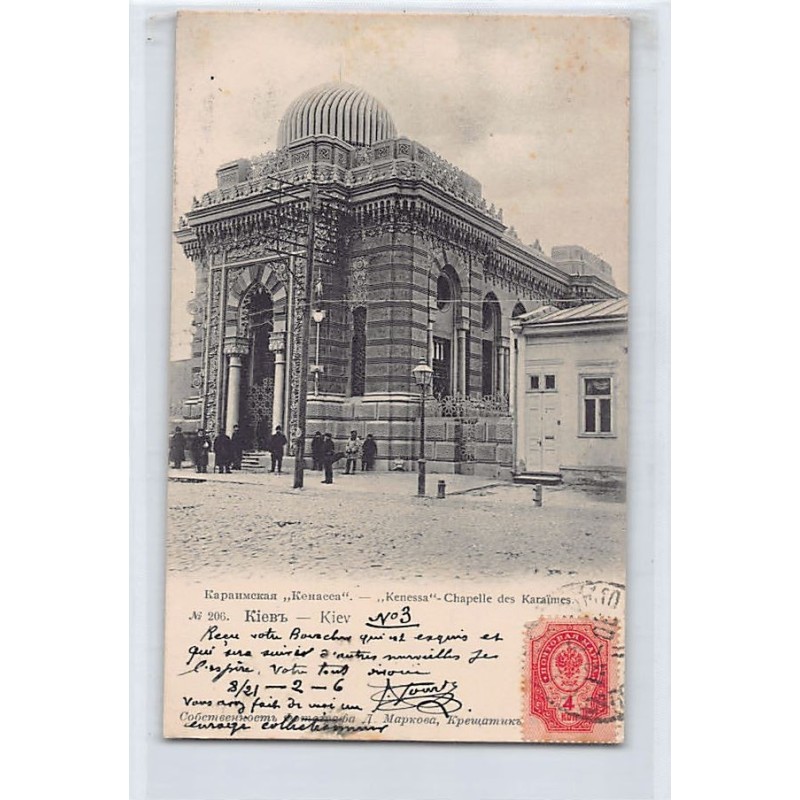 Караимская „Кенасса“. — „Kenessa“-Chapelle des Karaïmes.
№ 206. Кіевъ — Kiev No 3
Reçu votre qui est exquis et
qui sera suivie d'autres merveilles je
l'espère. Votre tout
8/21 — 2 — 6
Vous avez fait de moi un
Собственность фотографа Д. Маркова, Крещатикъ
enragé collectionneur
ПОЧТОВАЯ МАРКА
4
КОП